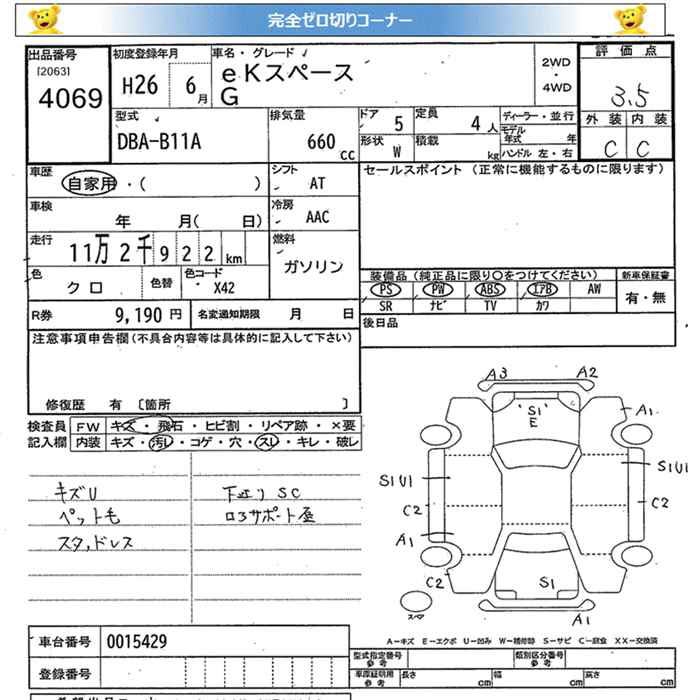 完全ゼロ切りコーナー
出品番号 初度登録年月 車名・グレード 評価点
[2063] 2WD
4069 H26 6月 eKスペース ・
G 4WD 3.5
型式 排気量 ドア 定員 ディーラー・並行 外装 内装
DBA-B11A 660 cc 5 4人 モデル年式 年 C C
形状 W 積載 kg ハンドル 左・右
車歴 シフト セールスポイント (正常に機能するものに限ります)
自家用・( ) AT
車検 冷房
年 月( 日) AAC
走行 燃料
11万2千922km ガソリン
色 色替 色コード 装備品(純正品に限り○をつけてください) 新車保証書
クロ X42 PS PW ABS エアB AW 有・無
R券 9,190円 名変通知期限 月 日 SR ナビ TV カワ
後日品
注意事項申告欄(不具合内容等は具体的に記入して下さい)
修復歴 有 〔箇所 〕
検査員 FW キズ・飛石・ヒビ割・リペア跡・×要
記入欄 内装 キズ・汚レ・コゲ・穴・スレ・キレ・破レ
キズU 下廻り SC
ペット毛
スタッドレス
A3 A2
S1 A1
E
S1U1 S1U1
C2 C2
A1
C2 S1
スペア A1
車台番号 0015429
A-キズ E-エクボ U-凹み W-補修跡 S-サビ C-腐食 XX-交換済
登録番号 型式指定番号 参考 類別区分番号 参考
車庫証明用 参考 長さ cm 幅 cm 高さ cm